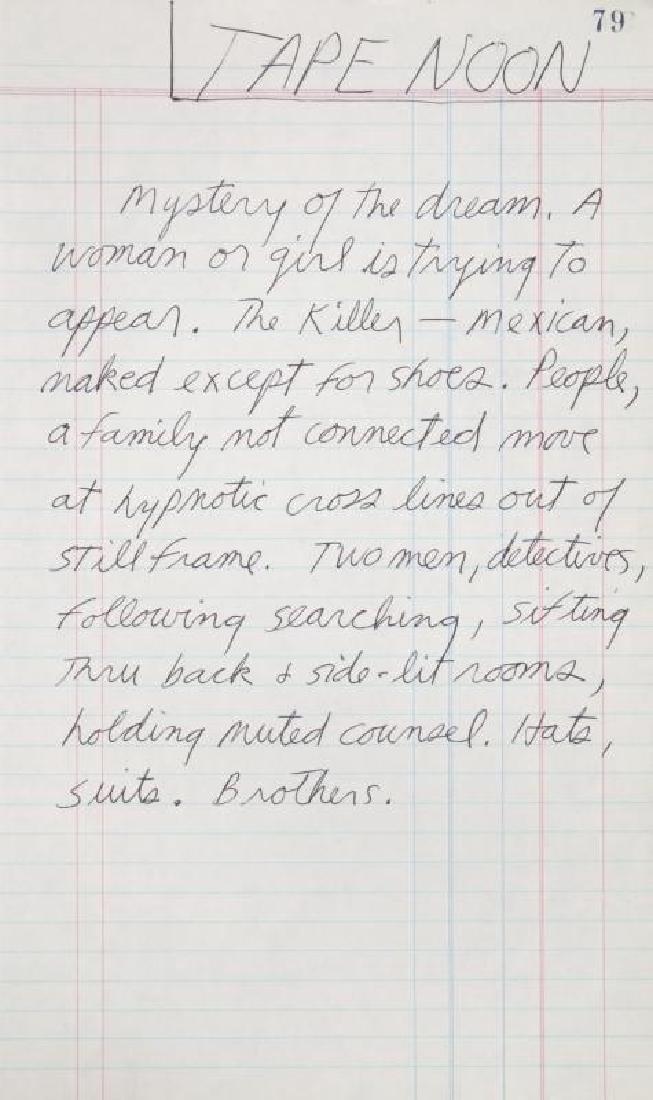 79
TAPE NOON
Mystery of the dream. A
woman or girl is trying to
appear. The Killer — Mexican,
naked except for shoes. People,
a family not connected move
at hypnotic cross lines out of
still frame. Two men, detectives,
following searching, sifting
thru back & side-lit rooms,
holding muted counsel. Hats,
suits. Brothers.